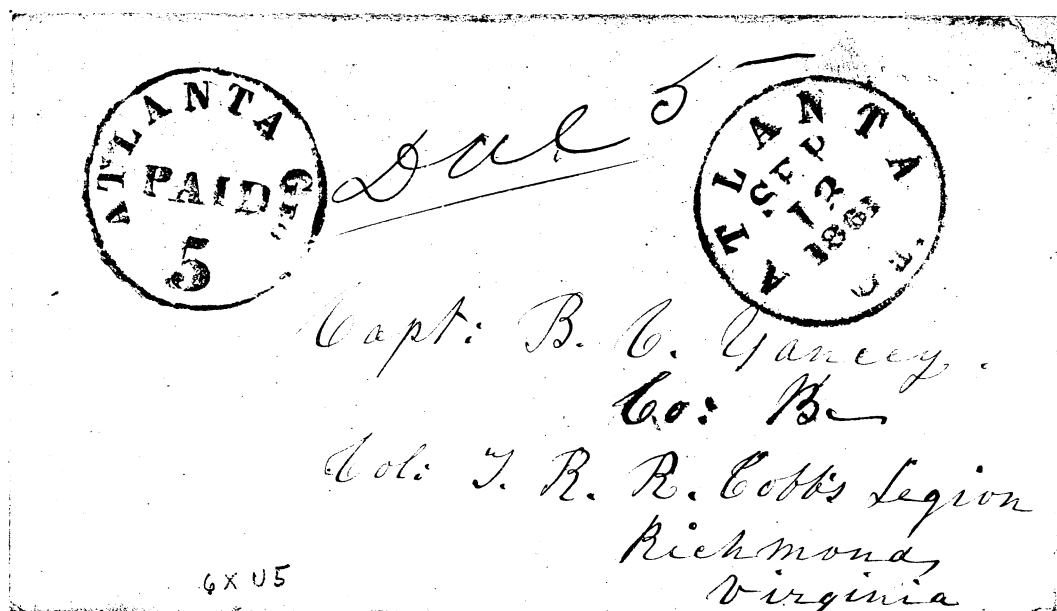 ATLANTA Geo
PAID
5
Due 5
ATLANTA
SEP
13
186
Capt: B. C. Yancey.
Co: B
Col: T. R. R. Cobb's Legion
Richmond,
Virginia
6 X U5